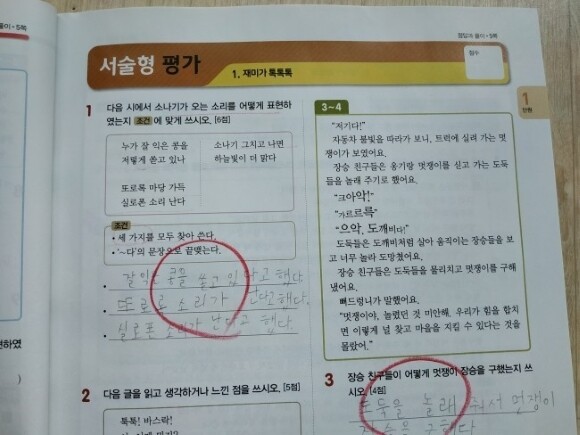 풀이•5쪽
정답과 풀이•5쪽
서술형 평가
1. 재미가 톡톡톡
점수
1
단원
1 다음 시에서 소나기가 오는 소리를 어떻게 표현하
였는지 조건 에 맞게 쓰시오. [6점]
누가 잘 익은 콩을
저렇게 쏟고 있나
또로록 마당 가득
실로폰 소리 난다
소나기 그치고 나면
하늘빛이 더 맑다
조건
• 세 가지를 모두 찾아 쓴다.
• '~다'의 문장으로 끝맺는다.
• 잘 익은 콩을 쏟고 있다고 했다.
• 또로로 소리가 난다고 했다.
• 실로폰 소리가 난다고 했다
2 다음 글을 읽고 생각하거나 느낀 점을 쓰시오. [5점]
톡톡! 바스락!
3~4
"저기다!"
자동차 불빛을 따라가 보니, 트럭에 실려 가는 멋
쟁이가 보였어요.
장승 친구들은 옹기랑 멋쟁이를 싣고 가는 도둑
들을 놀래 주기로 했어요.
"크아악!"
"가르르륵"
"으악, 도깨비다!"
도둑들은 도깨비처럼 살아 움직이는 장승들을 보
고 너무 놀라 도망쳤어요.
장승 친구들은 도둑들을 물리치고 멋쟁이를 구해
냈어요.
뻐드렁니가 말했어요.
"멋쟁이야, 놀렸던 것 미안해. 우리가 힘을 합치
면 이렇게 널 찾고 마을을 지킬 수 있다는 것을
몰랐어."
3 장승 친구들이 어떻게 멋쟁이 장승을 구했는지 쓰
시오. [4점]
도둑을 놀래 줘서 멋쟁이
장승을 구했다
현하였